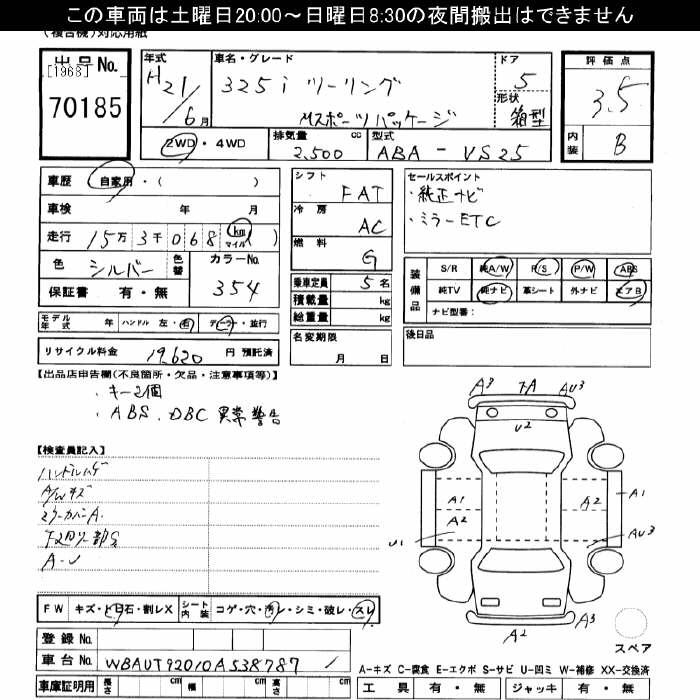 この車両は土曜日20:00～日曜日8:30の夜間搬出はできません
(複合機)対応用紙
出品No.
[1968]
70185
年式 H21/6月
車名・グレード
325i ツーリング
Mスポーツパッケージ
ドア 5
形状 箱型
2WD・4WD
排気量 2,500 cc
型式 ABA - VS25
評価点
3.5
内装 B
車歴 自家用・( )
車検 年 月
走行 15万3千068 km マイル ( )
色 シルバー 色替
カラーNo. 354
保証書 有・無
モデル年式 年 ハンドル 左・右 ディーラー・並行
リサイクル料金 19,620 円 預託済
シフト FAT
冷房 AC
燃料 G
乗車定員 5名
積載量 kg
総重量 kg
名変期限
月 日
セールスポイント
・純正ナビ
・ミラーETC
装備品
S/R 純A/W P/S P/W ABS
純TV 純ナビ 革シート 外ナビ エアB
ナビ型番：
後日品
【出品店申告欄(不良箇所・欠品・注意事項等)】
・キー2個
・ABS、DBC 異常警告
【検査員記入】
ハンドルハゲ
A/Wキズ
ミラーカバーA.
下スリ部
A-U
A3 TA AU3
U2
A1 A2 A1
A2
U1 AU3
A2 A3
スペア
FW キズ・ト飛石・割レX シート内装 コゲ・穴・汚レ・シミ・破レ・スレ
登録No.
車台No. WBAUT92010A538787
車庫証明用 長さ cm 幅 cm 高さ cm
A-キズ C-腐食 E-エクボ S-サビ U-凹ミ W-補修 XX-交換済
工具 有・無 ジャッキ 有・無